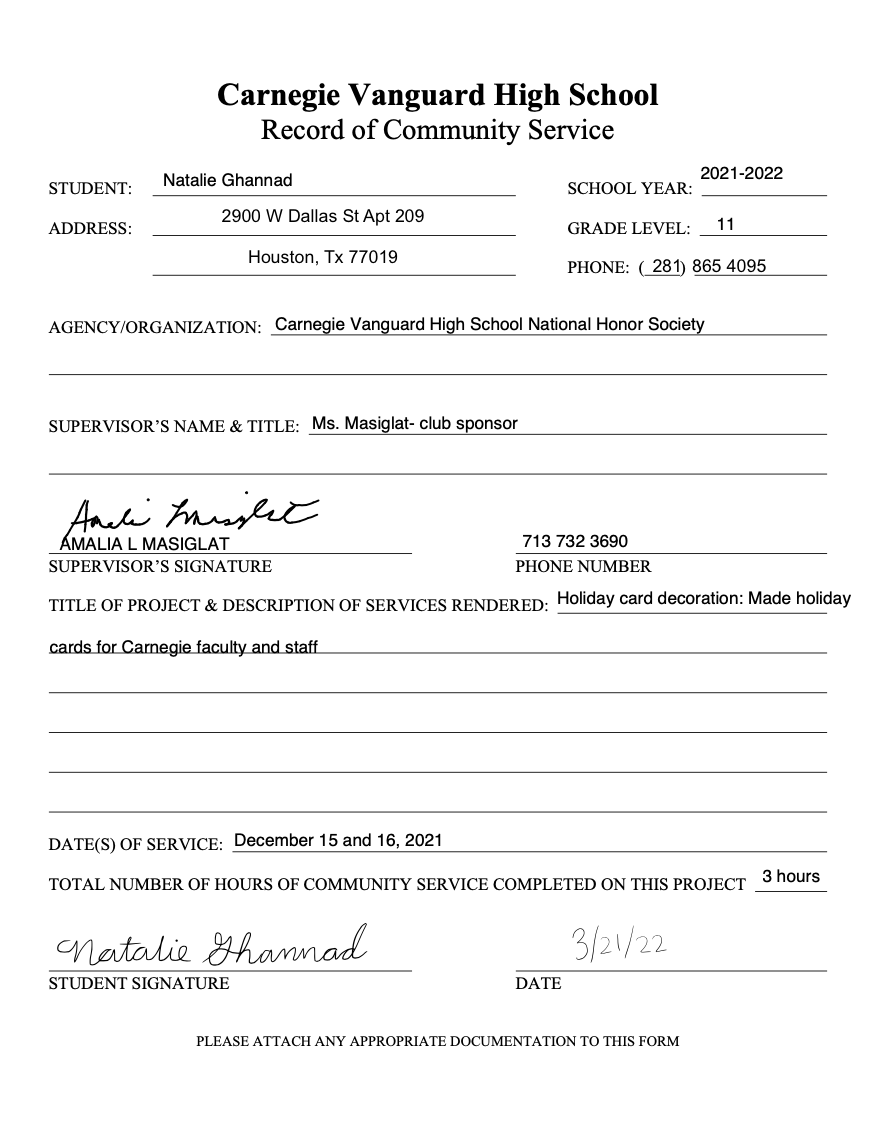 Carnegie Vanguard High School
Record of Community Service
STUDENT: Natalie Ghannad SCHOOL YEAR: 2021-2022
ADDRESS: 2900 W Dallas St Apt 209 GRADE LEVEL: 11
Houston, Tx 77019 PHONE: ( 281) 865 4095
AGENCY/ORGANIZATION: Carnegie Vanguard High School National Honor Society
SUPERVISOR'S NAME & TITLE: Ms. Masiglat- club sponsor
Amalia Masiglat
AMALIA L MASIGLAT 713 732 3690
SUPERVISOR'S SIGNATURE PHONE NUMBER
TITLE OF PROJECT & DESCRIPTION OF SERVICES RENDERED: Holiday card decoration: Made holiday
cards for Carnegie faculty and staff
DATE(S) OF SERVICE: December 15 and 16, 2021
TOTAL NUMBER OF HOURS OF COMMUNITY SERVICE COMPLETED ON THIS PROJECT 3 hours
Natalie Ghannad 3/21/22
STUDENT SIGNATURE DATE
PLEASE ATTACH ANY APPROPRIATE DOCUMENTATION TO THIS FORM